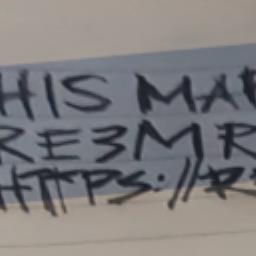 HIS MAR
RE3MR
HTTPS://R